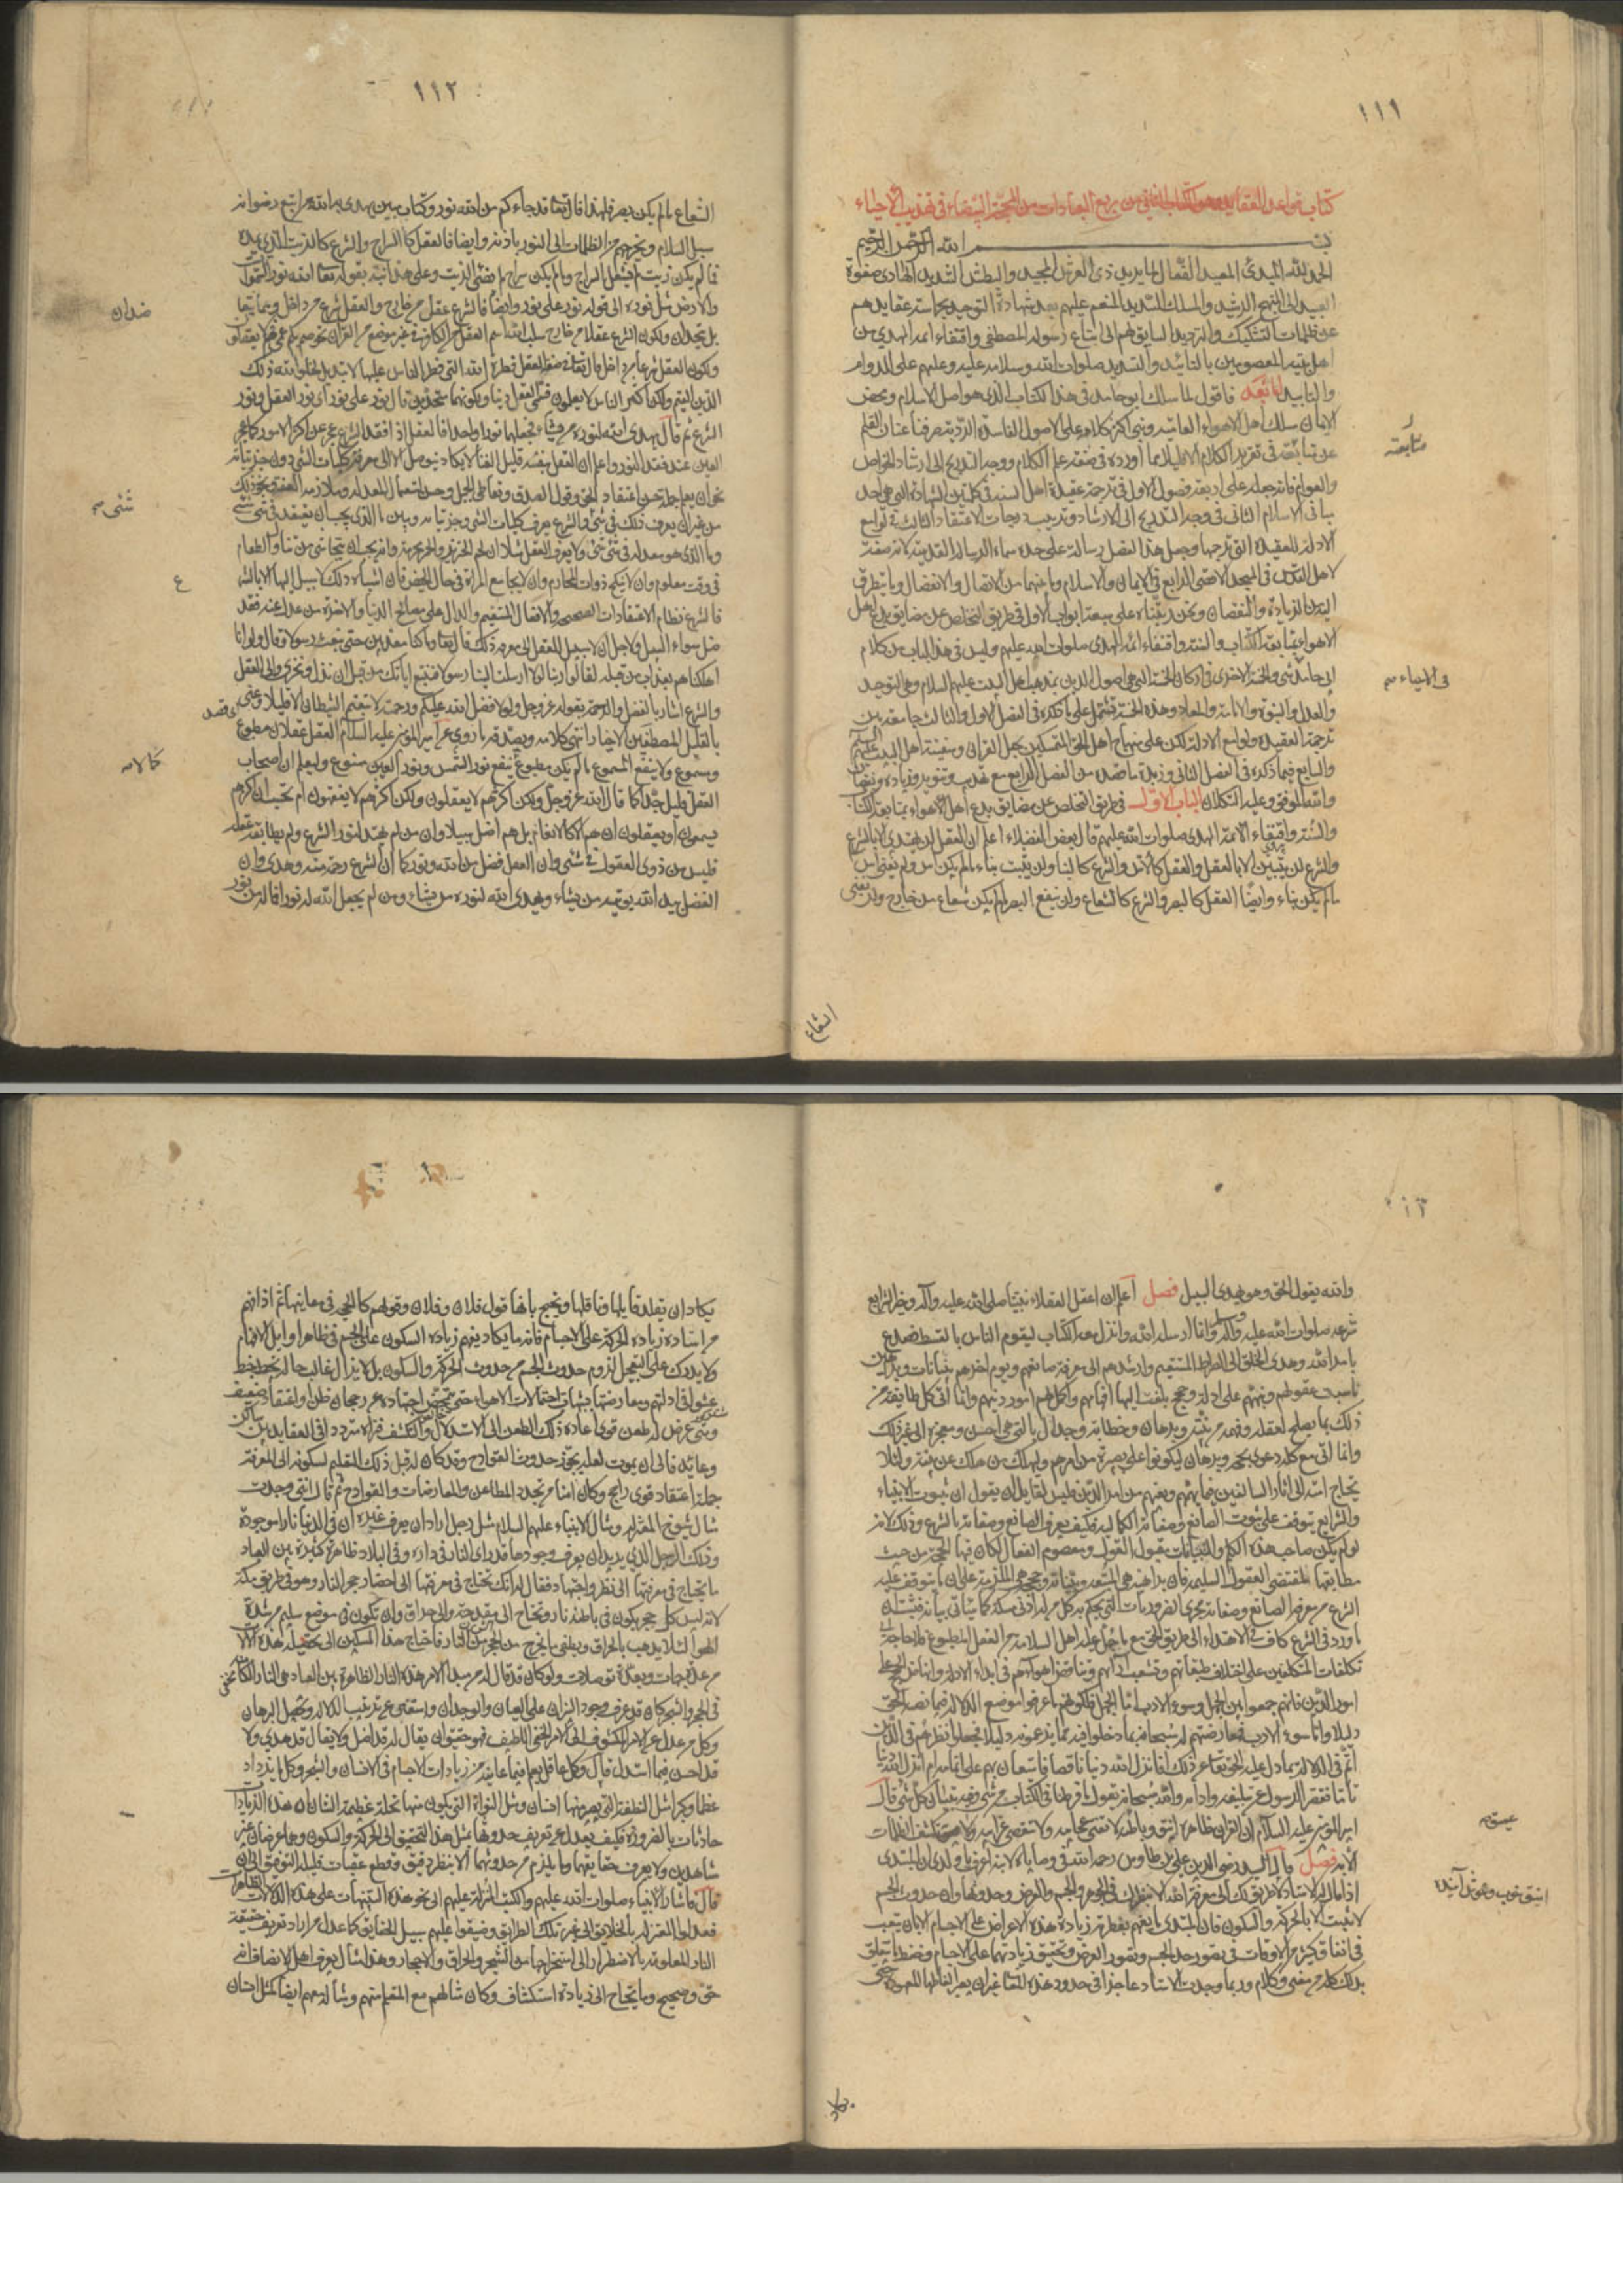 ١١١
كتاب قواعد العقايد وهو الكتاب الثاني من ربع العبادات من المحجة البيضاء في تهذيب الاحياء
بسم الله الرحمن الرحيم
الحمد لله المبدئ المعيد الفعال لما يريد ذي العرش المجيد والبطش الشديد الهادي صفوة
العبيد الى المنهج الرشيد والمسلك السديد المنعم عليهم بعد شهادة التوحيد بحراسة عقايدهم
عن ظلمات التشكيك والترديد السايق لهم الى اتباع رسوله المصطفى واقتفاء ائمة الهدى من
اهل بيته المعصومين بالتائيد والتسديد صلوات الله وسلامه عليه وعليهم على الدوام
والتابيد اما بعد فاقول لما سلك ابو حامد في هذا الكتاب الذي هو اصل الاسلام ومحض
الايمان مسلك اهل الاهواء العامية وبنى اكثر كلامه على الاصول الفاسدة الردية صرفنا عنان القلم
عن متابعته في تقرير الكلام الا قليلا مما اورده في صفة علم الكلام ووجه التدريج الى ارشاد الخواص
والعوام فانه جعله على اربعة فصول الاول في ترجمة عقيدة اهل السنة في كلمتي الشهادة التي هي احد
مباني الاسلام الثاني في وجه التدريج الى الارشاد وترتيب درجات الاعتقاد الثالث في لوامع
الادلة للعقيدة التي ترجمها وجعل هذا الفصل رسالة على حدة سماه الرسالة القدسية لانه صنفه
لاهل القدس في المسجد الاقصى الرابع في الايمان والاسلام وما بينهما من الاتصال والانفصال وما يتطرق
اليه من الزيادة والنقصان ونحن رتبناه على سبعة ابواب الاول في طريق التخلص عن مضايق بدع اهل
الاهواء بمتابعة الكتاب والسنة واقتفاء ائمة الهدى صلوات الله عليهم وليس في هذا الباب من كلام
ابي حامد شئ والخمسة الاخرى في اركان الخمسة التي هي اصول الدين بمذهب اهل البيت عليهم السلام وهي التوحيد
والعدل والنبوة والامامة والمعاد وهذه الخمسة تشتمل على ما ذكره في الفصل الاول والثالث جامعة بين
ترجمة العقيدة ولوامع الادلة لكن على منهاج اهل الحق المتمسكين بحبل القرآن وسفينة اهل البيت عليهم السلام
والسابع فيما ذكره في الفصل الثاني وزبدة ما قصده من الفصل الرابع مع تهذيب وتنوير وزيادة ونقصان
والله الموفق وعليه التكلان الباب الاول في طريق التخلص عن مضايق بدع اهل الاهواء بمتابعة الكتاب
والسنة واقتفاء الائمة الهدى صلوات الله عليهم قال بعض الفضلاء اعلم ان العقل لن يهتدي الا بالشرع
والشرع لن يتبين الا بالعقل والعقل كالاس والشرع كالبناء ولن يثبت بناء ما لم يكن اس ولم يغن اس
ما لم يكن بناء وايضا العقل كالبصر والشرع كالشعاع ولن ينفع البصر ما لم يكن شعاع من خارج ولن يغنى
متابعته
في الاحياء
الشعاع
١١٢
الشعاع ما لم يكن بصر فلهذا قال تعالى قد جاءكم من الله نور وكتاب مبين يهدي به الله من اتبع رضوانه
سبل السلام ويخرجهم من الظلمات الى النور باذنه وايضا فالعقل كالسراج والشرع كالزيت الذي يمده
فما لم يكن زيت لم يشتعل السراج وما لم يكن سراج لم يضئ الزيت وعلى هذا نبه بقوله تعالى الله نور السموات
والارض مثل نوره الى قوله نور على نور وايضا فالشرع عقل من خارج والعقل شرع من داخل وهما يتعاضدان
بل يتحدان ولكون الشرع عقلا من خارج سلب الله اسم العقل من الكافر في غير موضع من القرآن نحو صم بكم عمي فهم لا يعقلون
ولكون العقل شرعا من داخل قال تعالى في صفة العقل فطرة الله التي فطر الناس عليها لا تبديل لخلق الله ذلك
الدين القيم ولكن اكثر الناس لا يعلمون فسمى العقل دينا ولكونهما متحدين قال نور على نور اي نور العقل ونور
الشرع ثم قال يهدي الله لنوره من يشاء فجعلهما نورا واحدا فالعقل اذا فقد الشرع عجز عن اكثر الامور كما عجز
العين عند فقد النور واعلم ان العقل بنفسه قليل الغنا لا يكاد يتوصل الا الى معرفة كليات الشئ دون جزئياته
نحو ان يعلم جملة حسن اعتقاد الحق وقول الصدق وتعاطي الجميل وحسن استعمال المعدلة وملازمة العفة ونحو ذلك
من غير ان يعرف ذلك في شئ والشرع يعرف كليات الشئ وجزئياته ويبين ما الذي يجب ان يعتقد في شئ شئ
وما الذي هو معدلة في شئ شئ ولا يعرف العقل مثلا ان لحم الخنزير والخمر محرمة وانه يجب ان يتحاشى من تناول الطعام
في وقت معلوم وان لا ينكح ذوات المحارم وان لا يجامع المراة في حال الحيض فان اشباه ذلك لا سبيل اليها الا بالشرع
فالشرع نظام الاعتقادات الصحيحة والافعال المستقيمة والدال على مصالح الدنيا والاخرة من عدل عنه فقد
ضل سواء السبيل ولاجل ان لا سبيل للعقل الى معرفة ذلك قال تعالى وما كنا معذبين حتى نبعث رسولا وقال ولو انا
اهلكناهم بعذاب من قبله لقالوا ربنا لولا ارسلت الينا رسولا فنتبع اياتك من قبل ان نذل ونخزى والى العقل
والشرع اشار بالفضل والرحمة بقوله عز وجل ولولا فضل الله عليكم ورحمته لاتبعتم الشيطان الا قليلا وعنى
بالقليل المصطفين الاخيار انتهى كلامه ويصدقه ما روي عن امير المؤمنين عليه السلام العقل عقلان مطبوع
ومسموع ولا ينفع المسموع ما لم يكن مطبوع كما لا ينفع نور الشمس ونور العين ممنوع وليعلم ان اصحاب
العقل قليل جدا كما قال الله عز وجل ولكن اكثرهم لا يعقلون ولكن اكثرهم لا يفقهون ام تحسب ان اكثرهم
يسمعون او يعقلون ان هم الا كالانعام بل هم اضل سبيلا وان من لم يهتد لنور الشرع ولم يطابقه عقله
فليس من ذوي العقول في شئ وان العقل فضل من الله ونور كما ان الشرع رحمة منه وهدى وان
الفضل بيد الله يؤتيه من يشاء ويهدي الله لنوره من يشاء ومن لم يجعل الله له نورا فما له من نور
ضدان
شئ
ع
كما لا
والله يقول الحق وهو يهدي السبيل فصل اعلم ان اعقل العقلاء نبينا صلى الله عليه وآله وخير الشرايع
شرعه صلوات الله عليه وآله وانما ارسله الله وانزل معه الكتاب ليقوم الناس بالقسط فصدع
بامر الله وهدى الخلق الى الصراط المستقيم وارشدهم الى معرفة صانعهم ويوم اخرهم ببينات وبراهين
ناسبت عقولهم ونبههم على ادلة وحجج بلغت اليها افهامهم واكمل لهم امور دينهم وانما اتى كل طايفة من
ذلك بما يصلح لعقله وفهمه من تنبيه وبرهان وخطابة وجدال بالتي هي احسن ومعجزة الى غير ذلك
وانما اتى مع كل دعوى بحجة وبرهان ليكونوا على بصيرة من امرهم وليهلك من هلك عن بينة ولئلا
يحتاج امته الى اثار السالفين فيما يهمهم ويعنيهم من امر الدين فليس لقايل ان يقول ان ثبوت الانبياء
والشرايع يتوقف على ثبوت الصانع وصفاته الكمالية فكيف يعرف الصانع وصفاته بالشرع وذلك لانه
لو لم يكن صاحب هذه الكلم والبينات مقبول القول ومعصوم الفعال لكان فيها الحجة من حيث
مطابقتها لمقتضى العقول السليمة فان براهينه هي المتبعة وبيناته وحججه هي الملزمة على ان ما يتوقف عليه
الشرع من معرفة الصانع وصفاته يجري مجرى الضروريات التي يحكم به كل من له ادنى مسكة كما سياتي بيانه فثبت ان
ما ورد في الشرع كاف في الاهتداء الى طريق الحق مع ما جبل عليه اهل السلامة من العقل المطبوع فلا حاجة الى
تكلفات المتكلفين على اختلاف طبقاتهم وتشعب ارائهم وتناقض اهوائهم في ابداء الادلة وانشاء الحجج على
امور الدين فانهم جمعوا بين الجهل وسوء الادب اما الجهل فلكونهم ما عرفوا موضع الدلالة فيما نصبه الحق
دليلا واما سوء الادب فمعارضتهم لله سبحانه بما دخلوا فيه مما يزعمونه دليلا فجعلوا نظرهم في الدين
اتم في الدلالة مما دل عليه الحق تعالى عن ذلك افانزل الله دينا ناقصا فاستعان بهم على اتمامه ام انزل الله دينا
تاما فقصر الرسول عن تبليغه وادائه والله سبحانه يقول ما فرطنا في الكتاب من شئ وفيه تبيان كل شئ وقال
امير المؤمنين عليه السلام ان القرآن ظاهره انيق وباطنه لا تفنى عجايبه ولا تنقضي غرايبه ولا تكشف الظلمات
الا به فصل قال السيد رضي الدين علي بن طاوس رحمه الله في وصاياه لابنه
اذا قال له الاستاد لا طريق لك الى معرفة الله الا بنظرك في الجوهر والجسم والعرض وحدوثها وان حدوث الجسم
لا يثبت الا بالحركة والسكون فان المبتدي ما يفهم بفطرته زيادة هذه الاعراض على الاجسام الا بان يتعب
في انفاق كثير من الاوقات في تصور حد الجسم وتصور العرض وتحقيق زيادتهما على الاجسام وحفظ ما يتعلق
بذلك كله من معنى وكلام وربما وجدت الاستاد عاجزا في حدود هذه المعاني
عميق
انيق خوب وخوش آينده
يكاد
يكاد ان يقلد قايلها وناقلها ويحتج بانها قول فلان وفلان وقولهم كالحجة في معانيها ثم اذا فهم
من استاده زيادة الحركة على الاجسام فانه ما يكاد يفهم زيادة السكون على الجسم في ظاهر اوايل الافهام
ولا يدرك على التعجيل لزوم حدوث الجسم من حدوث الحركة والسكون بل لا يزال غالب حاله يخبط خبط
عشواء في ادلتهم ومعارضتها بشبهات احتمالات الاهواء حتى يتمخض اجتهاده عن رجحان ظن او اعتقاد ضعيف
ومتى عرض له طعن قوي اعاده ذلك الطعن الى الاستدلال والكشف فتراه مترددا في العقايد بين ساكن
وعايد فالى ان يموت لعله يجوز حدوث القوادح وقد كان له قبل ذلك التعليم لسكونه الى المعرفة
جملة اعتقاد قوي راجح وكان امنا من تجدد المطاعن والمعارضات والقوادح ثم قال انني وجدت
مثال شيوخ المعتزلة ومثال الانبياء عليهم السلام مثل رجل اراد ان يعرف غيره ان في الدنيا نارا موجودة
وذلك الرجل الذي يريد ان يعرف وجودها قد راى النار في داره وفي البلاد ظاهرة كثيرة بين العباد
ما يحتاج في معرفتها الى نظر واجتهاد فقال له انك تحتاج في معرفتها الى احضار حجر النار وهو في طريق مكة
لانه ليس كل حجر يكون في باطنه نار وتحتاج الى مقدحة والى حراق وان تكون في موضع سليم من شدة
الهوا لئلا يذهب بالحراق ويطفي ما يخرج من الحجر من النار فاحتاج هذا المسكين الى تحصيل هذه الآلات
من عدة جهات وبعدة توصلات ولو كان قد قال له من مبدا الامر هذه النار الظاهرة بين العباد هي النار الكامنة
في الحجر والشجر كان قد عرف وجود النار على العيان والوجدان واستغنى عن ترتيب الدلالة وتحصيل البرهان
وكل من عدل عن الامر المكشوف الى الامر الخفي اللطيف فهو حقيق ان يقال له قد اضل ولا يقال قد هدي ولا
قد احسن فيما استدل قال وكل عاقل يعلم فيما عاينه من زيادات الاجسام في الانسان والشجر وكل ما يزداد
عظما وكبرا مثل النطفة التي يصير منها انسان ومثل النواة التي يكون منها نخلة عظيمة الشان ان هذه الزيادات
حادثات بالضرورة فكيف يعدل عن تعريف حدوثها بمثل هذا التحقيق الى الحركة والسكون وهما عرضان غير
مشاهدين ولا يعرف حقايقهما وما يلزم من حدوثهما الا بنظر دقيق وقطع عقبات فيلقه التوفيق
قال فاشار الانبياء صلوات الله عليهم والكتب المنزلة عليهم الى نحو هذه التنبيهات على هذه الدلالات الظاهرات
فعدلوا المعتزلة بالخلايق الى غير تلك الطرايق وضيقوا عليهم سبيل الحقايق كما عدل من اراد تعريف حقيقة
النار المعلومة بالاضطرار الى استخراجها من الشجر والحراق والاحجار وهذا مثال يعرفه اهل الانصاف انه
حق وصحيح وما يحتاج الى زيادة استكشاف وكان مثالهم مع المتعلم منهم ومثاله معهم ايضا كمثل انسان